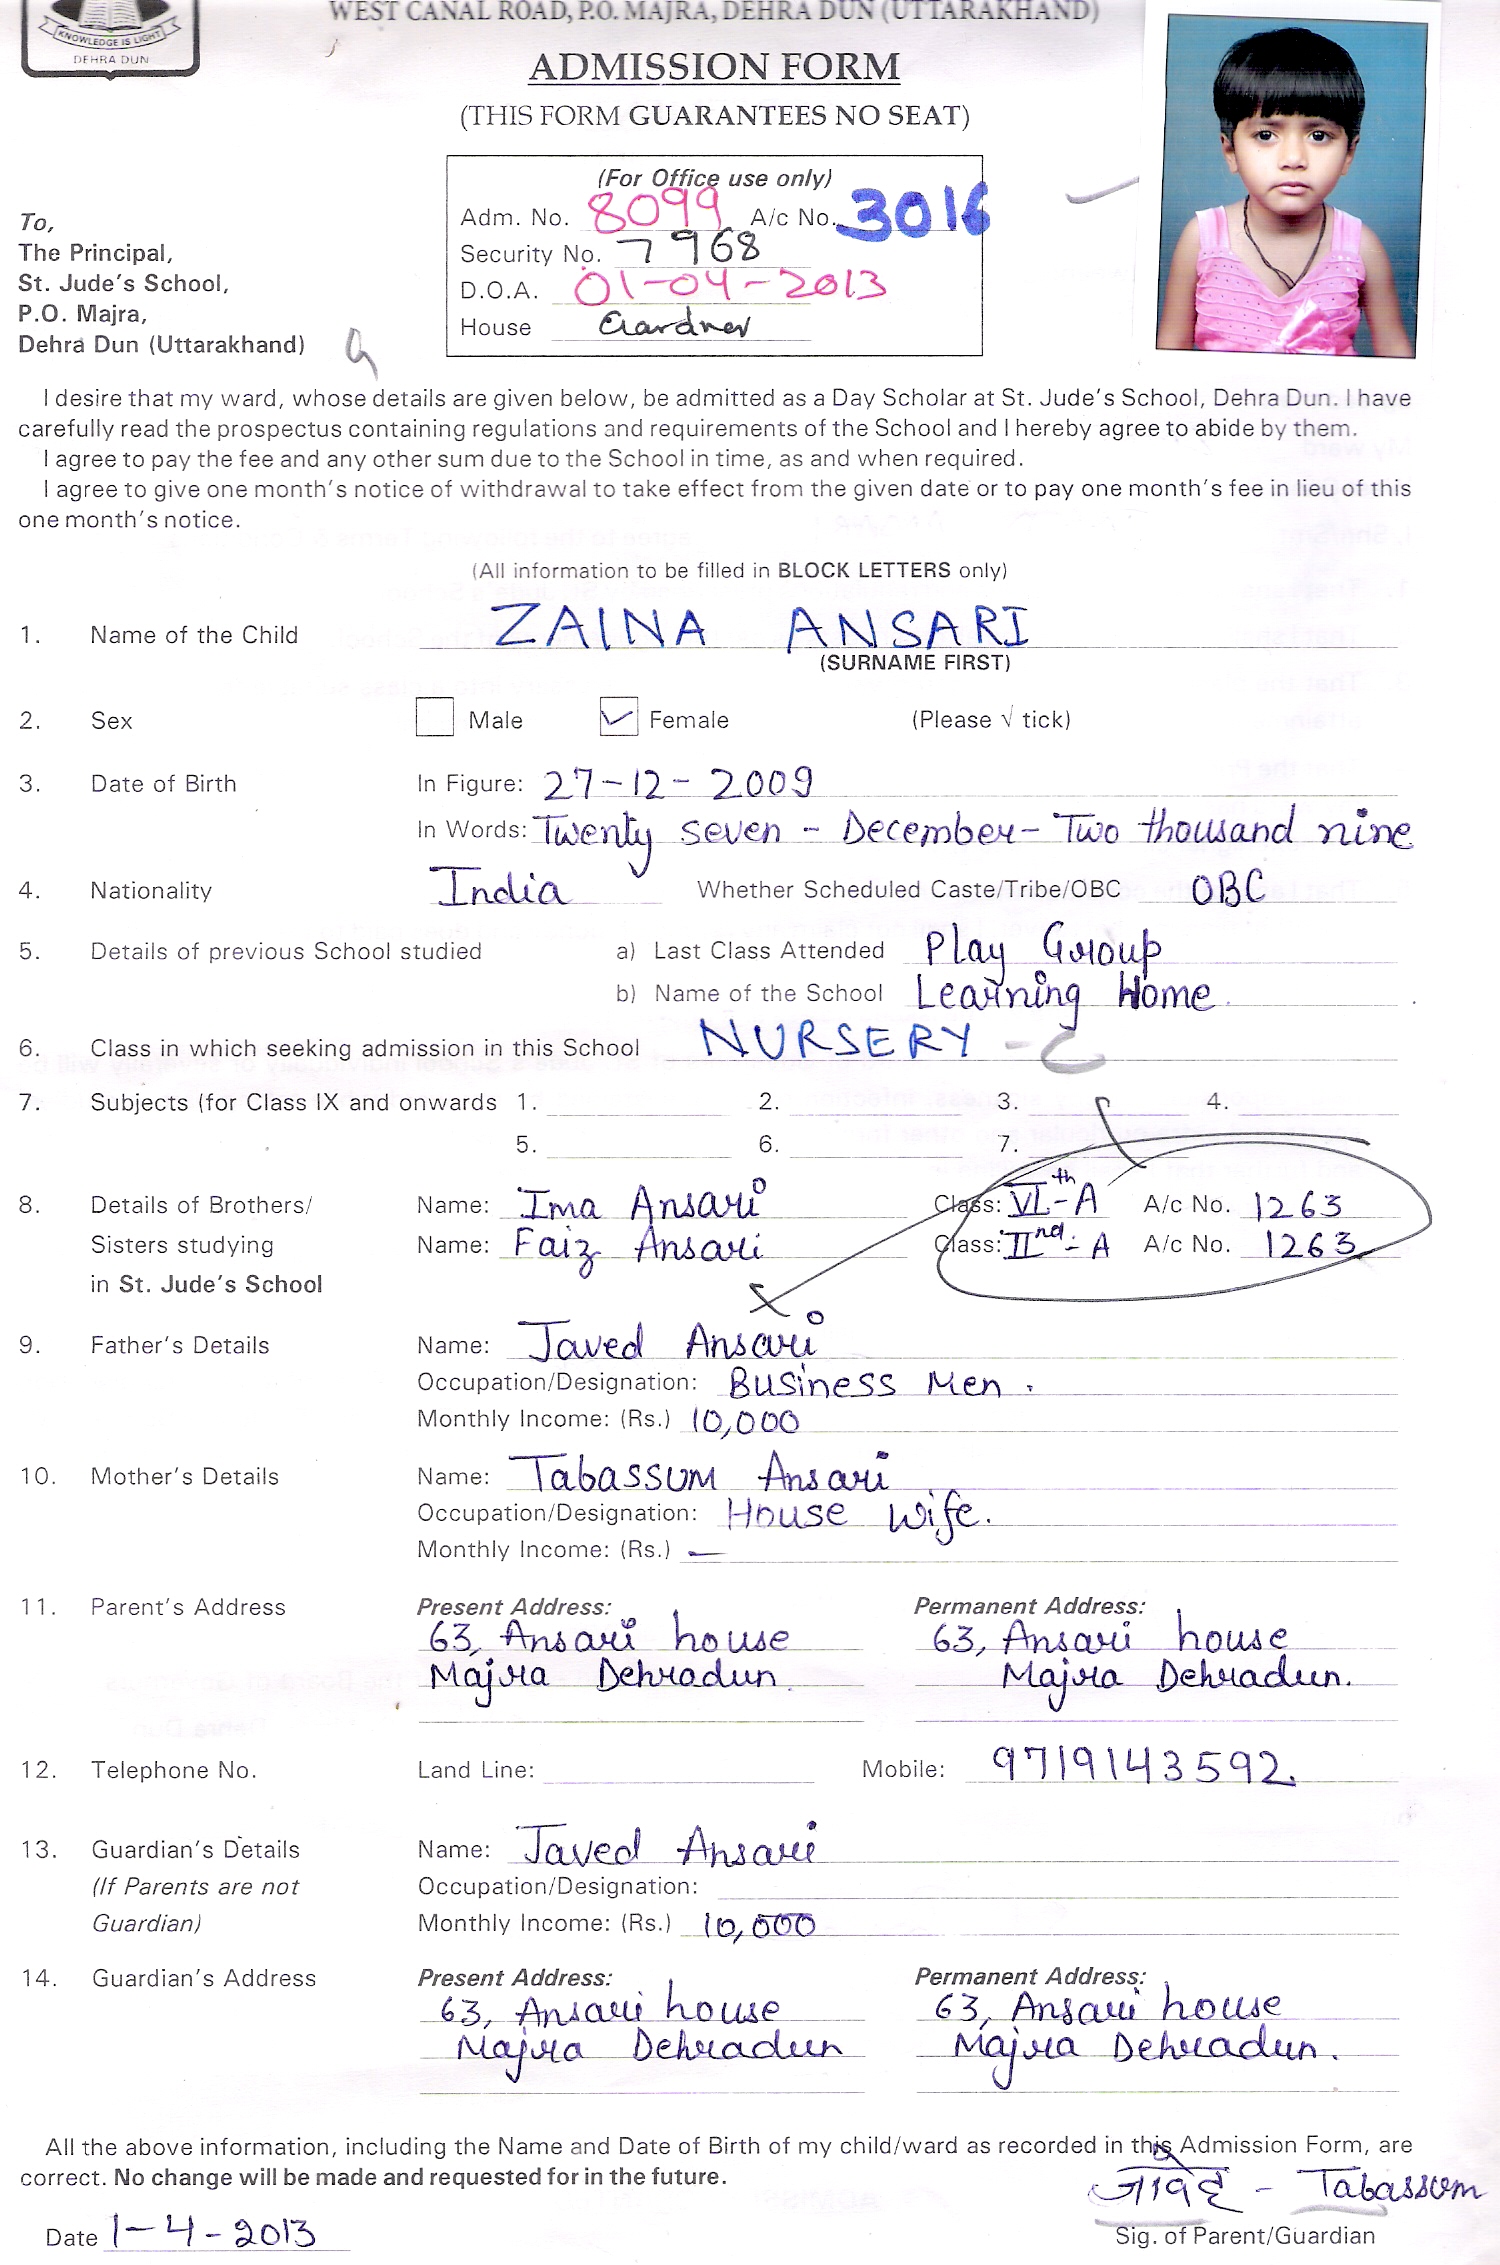 WEST CANAL ROAD, P.O. MAJRA, DEHRA DUN (UTTARAKHAND)
KNOWLEDGE IS LIGHT
DEHRA DUN
ADMISSION FORM
(THIS FORM GUARANTEES NO SEAT)
(For Office use only)
Adm. No. 8099 A/c No. 3016
Security No. 7968
D.O.A. 01-04-2013
House Gardner
To,
The Principal,
St. Jude's School,
P.O. Majra,
Dehra Dun (Uttarakhand)
I desire that my ward, whose details are given below, be admitted as a Day Scholar at St. Jude's School, Dehra Dun. I have
carefully read the prospectus containing regulations and requirements of the School and I hereby agree to abide by them.
I agree to pay the fee and any other sum due to the School in time, as and when required.
I agree to give one month's notice of withdrawal to take effect from the given date or to pay one month's fee in lieu of this
one month's notice.
(All information to be filled in BLOCK LETTERS only)
1. Name of the Child ZAINA ANSARI
(SURNAME FIRST)
2. Sex Male Female (Please √ tick)
3. Date of Birth In Figure: 27-12-2009
In Words: Twenty seven - December - Two thousand nine
4. Nationality India Whether Scheduled Caste/Tribe/OBC OBC
5. Details of previous School studied a) Last Class Attended Play Group
b) Name of the School Learning Home
6. Class in which seeking admission in this School NURSERY - C
7. Subjects (for Class IX and onwards 1. 2. 3. 4.
5. 6. 7.
8. Details of Brothers/ Name: Ima Ansari Class: VIth-A A/c No. 1263
Sisters studying Name: Faiz Ansari Class: IInd-A A/c No. 1263
in St. Jude's School
9. Father's Details Name: Javed Ansari
Occupation/Designation: Business Men.
Monthly Income: (Rs.) 10,000
10. Mother's Details Name: Tabassum Ansari
Occupation/Designation: House Wife.
Monthly Income: (Rs.) —
11. Parent's Address Present Address: Permanent Address:
63, Ansari house 63, Ansari house
Majra Dehradun. Majra Dehradun.
12. Telephone No. Land Line: Mobile: 9719143592.
13. Guardian's Details Name: Javed Ansari
(If Parents are not Occupation/Designation:
Guardian) Monthly Income: (Rs.) 10,000
14. Guardian's Address Present Address: Permanent Address:
63, Ansari house 63, Ansari house
Majra Dehradun Majra Dehradun.
All the above information, including the Name and Date of Birth of my child/ward as recorded in this Admission Form, are
correct. No change will be made and requested for in the future.
जावेद - Tabassum
Date 1-4-2013 Sig. of Parent/Guardian